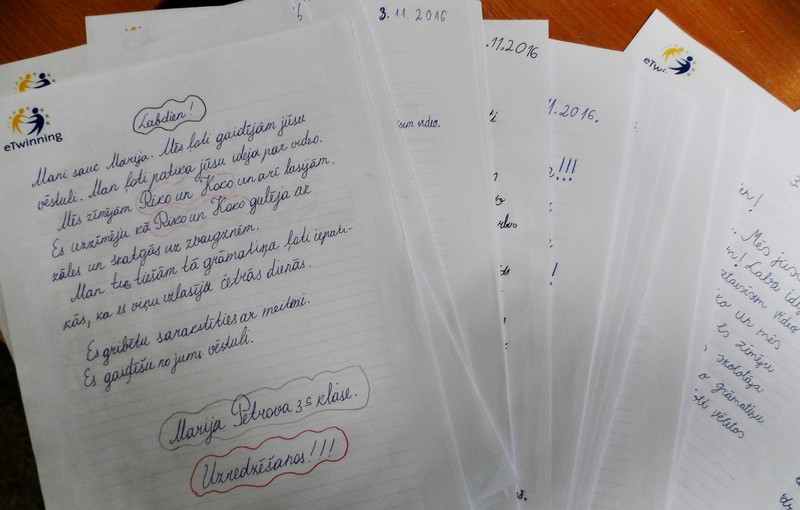 eTwinning
Labdien!
Mani sauc Marija. Mēs ļoti gaidījām jūsu
vēstuli. Man ļoti patika jūsu ideja par video.
Mēs zīmējām Riko un Koko un arī lasījām.
Es uzzīmēju kā Riko un Koko gulēja ak
zāles un skatījās uz zvaigznēm.
Man tik tiešām tā grāmatiņa ļoti iepati-
kās, ka es viņu izlasīju četrās dienās.
Es gribētu sarakstīties ar meitni.
Es gaidīšu no jums vēstuli.
Marija Petrova 3c klase.
Uzredzēšanos!!!
3.11.2016
video.
.11.2016
1.2016.
!!!
!
eTwi
in!
Mēs jūsu
n! Laba ide
video
ko un mēs
Es zīmēju
skolotāja
o grāmatiņu
vēlētos